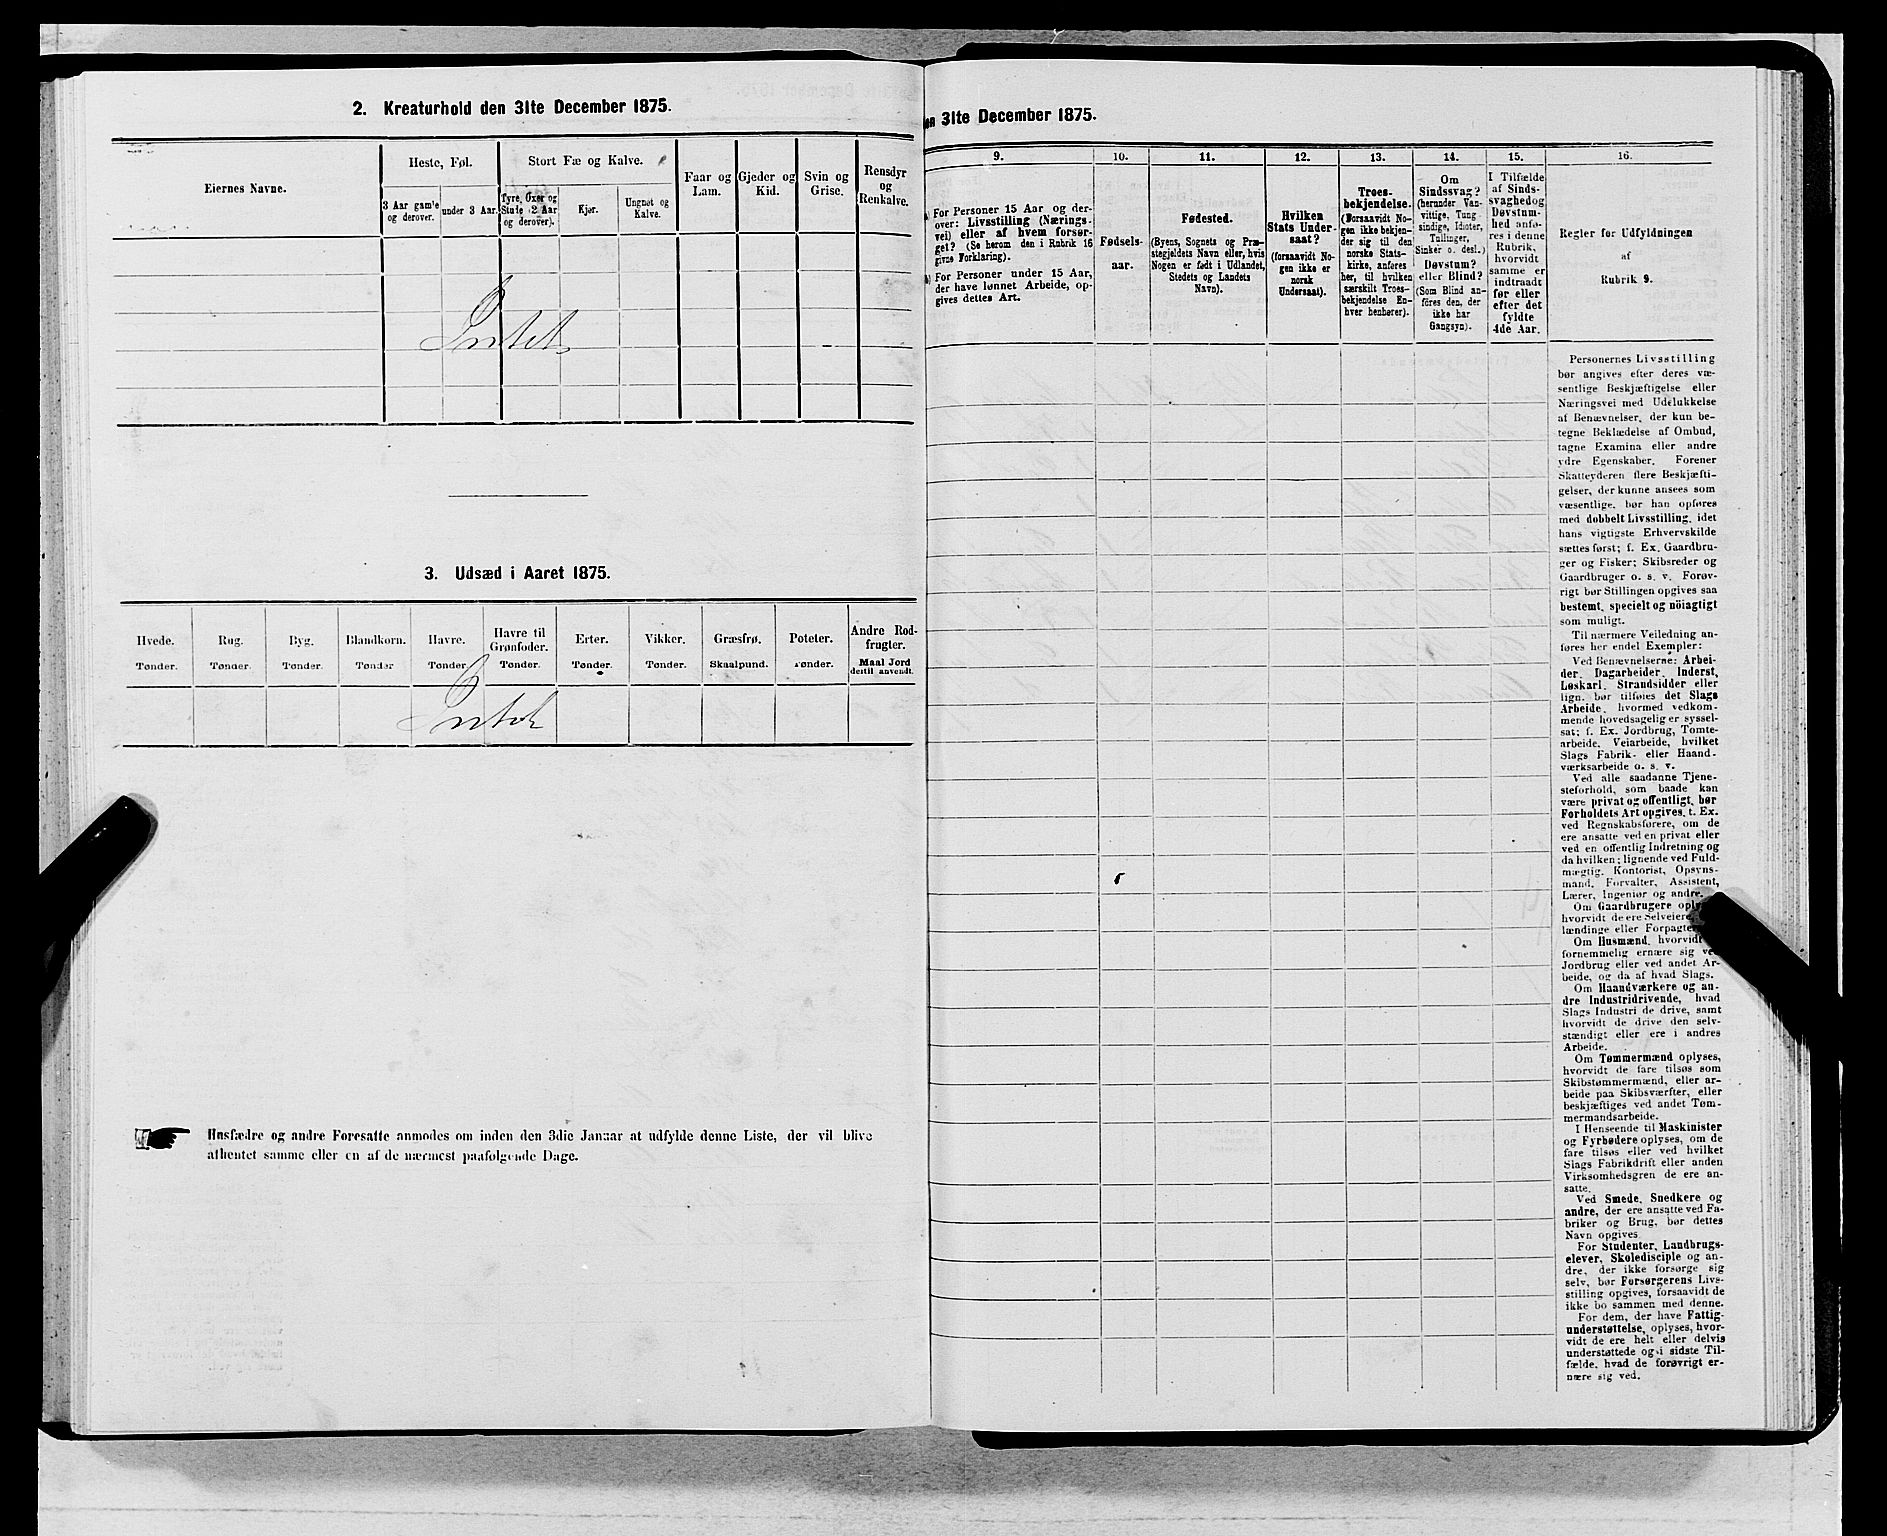 2. Kreaturhold den 31te December 1875.
Eiernes Navne.
Heste, Føl.
3 Aar gamle og derover.
under 3 Aar.
Stort Fæ og Kalve.
Tyre, Oxer og Stude (2 Aar og derover).
Kjør.
Ungnøt og Kalve.
Faar og Lam.
Gjeder og Kid.
Svin og Grise.
Rensdyr og Renkalve.
Intet
3. Udsæd i Aaret 1875.
Hvede. Tønder.
Rug. Tønder.
Byg. Tønder.
Blandkorn. Tønder
Havre. Tønder.
Havre til Grønfoder. Tønder.
Erter. Tønder.
Vikker. Tønder.
Græsfrø. Skaalpund.
Poteter. Tønder.
Andre Rodfrugter. Maal Jord dertil anvendt.
Intet
Husfædre og andre Foresatte anmodes om inden den 3die Januar at udfylde denne Liste, der vil blive
afhentet samme eller en af de nærmest paafølgende Dage.
en 31te December 1875.
9.
For Personer 15 Aar og derover: Livsstilling (Næringsvei) eller af hvem forsørget? (Se herom den i Rubrik 16 givne Forklaring).
For Personer under 15 Aar, der have lønnet Arbeide, opgives dettes Art.
10.
Fødselsaar.
11.
Fødested.
(Byens, Sognets og Præstegjeldets Navn eller, hvis Nogen er født i Udlandet, Stedets og Landets Navn).
12.
Hvilken Stats Undersaat?
(forsaavidt Nogen ikke er norsk Undersaat).
13.
Troesbekjendelse.
(Forsaavidt Nogen ikke bekjender sig til den norske Statskirke, anføres her, til hvilken særskilt Troesbekjendelse Enhver henhører).
14.
Om Sindssvag?
(herunder Vanvittige, Tungsindige, Idioter, Tullinger, Sinker o. desl.)
Døvstum?
eller Blind?
(Som Blind anføres den, der ikke har Gangsyn).
15.
I Tilfælde af Sindssvaghed og Døvstumhed anføres i denne Rubrik, hvorvidt samme er indtraadt før eller efter det fyldte 4de Aar.
16.
Regler for Udfyldningen
af
Rubrik 9.
Personernes Livsstilling
bør angives efter deres væ-
sentlige Beskjæftigelse eller
Næringsvei med Udelukkelse
af Benævnelser, der kun be-
tegne Beklædelse af Ombud,
tagne Examina eller andre
ydre Egenskaber. Forener
Skatteyderen flere Beskjæfti-
gelser, der kunne ansees som
væsentlige, bør han opføres
med dobbelt Livsstilling, idet
hans vigtigste Erhvervskilde
sættes først; f. Ex. Gaardbru-
ger og Fisker; Skibsreder og
Gaardbruger o. s. v. Forøv-
rigt bør Stillingen opgives saa
bestemt, specielt og nöiagtigt
som muligt.
Til nærmere Veiledning an-
føres her endel Exempler:
Ved Benævnelserne: Arbei-
der, Dagarbeider, Inderst,
Løskarl, Strandsidder eller
lign. bør tilføies det Slags
Arbeide, hvormed vedkom-
mende hovedsagelig er syssel-
sat; f. Ex. Jordbrug, Tomte-
arbeide, Veiarbeide, hvilket
Slags Fabrik- eller Haand-
værksarbeide o. s. v.
Ved alle saadanne Tjene-
steforhold, som baade kan
være privat og offentligt, bør
Forholdets Art opgives, f. Ex.
ved Regnskabsførere, om de
ere ansatte ved en privat eller
ved en offentlig Indretning og
da hvilken; lignende ved Fuld-
mægtig, Kontorist, Opsyns-
mand, Forvalter, Assistent,
Lærer, Ingeniør og andre.
Om Gaardbrugere
hvorvidt de ere Selveiere,
lændinge eller
Om Husmænd, hvorvidt
fornemmelig ernære sig
Jordbrug eller ved andet Ar-
beide, og da af hvad Slags.
Om Haandværkere og an-
dre Industridrivende, hvad
Slags Industri de drive, samt
hvorvidt de drive den selv-
stændigt eller ere i andres
Arbeide.
Om Tømmermænd oplyses,
hvorvidt de fare tilsøs som
Skibstømmermænd, eller ar-
beide paa Skibsværfter, eller
beskjæftiges ved andet Tøm-
mermandsarbeide.
I Henseende til Maskinister
og Fyrbødere oplyses, om de
fare tilsøs eller ved hvilket
Slags Fabrikdrift eller anden
Virksomhedsgren de ere an-
satte.
Ved Smede, Snedkere og
andre, der ere ansatte ved Fa-
briker og Brug, bør dettes
Navn opgives.
For Studenter, Landbrugs-
elever, Skoledisciple og an-
dre, der ikke forsørge sig
selv, bør Forsørgerens Livs-
stilling opgives, forsaavidt de
ikke bo sammen med denne.
For dem, der have Fattig-
understøttelse, oplyses, hvor-
vidt de ere helt eller delvis
understøttede og i sidste Til-
fælde, hvad de forøvrigt er-
nære sig ved.